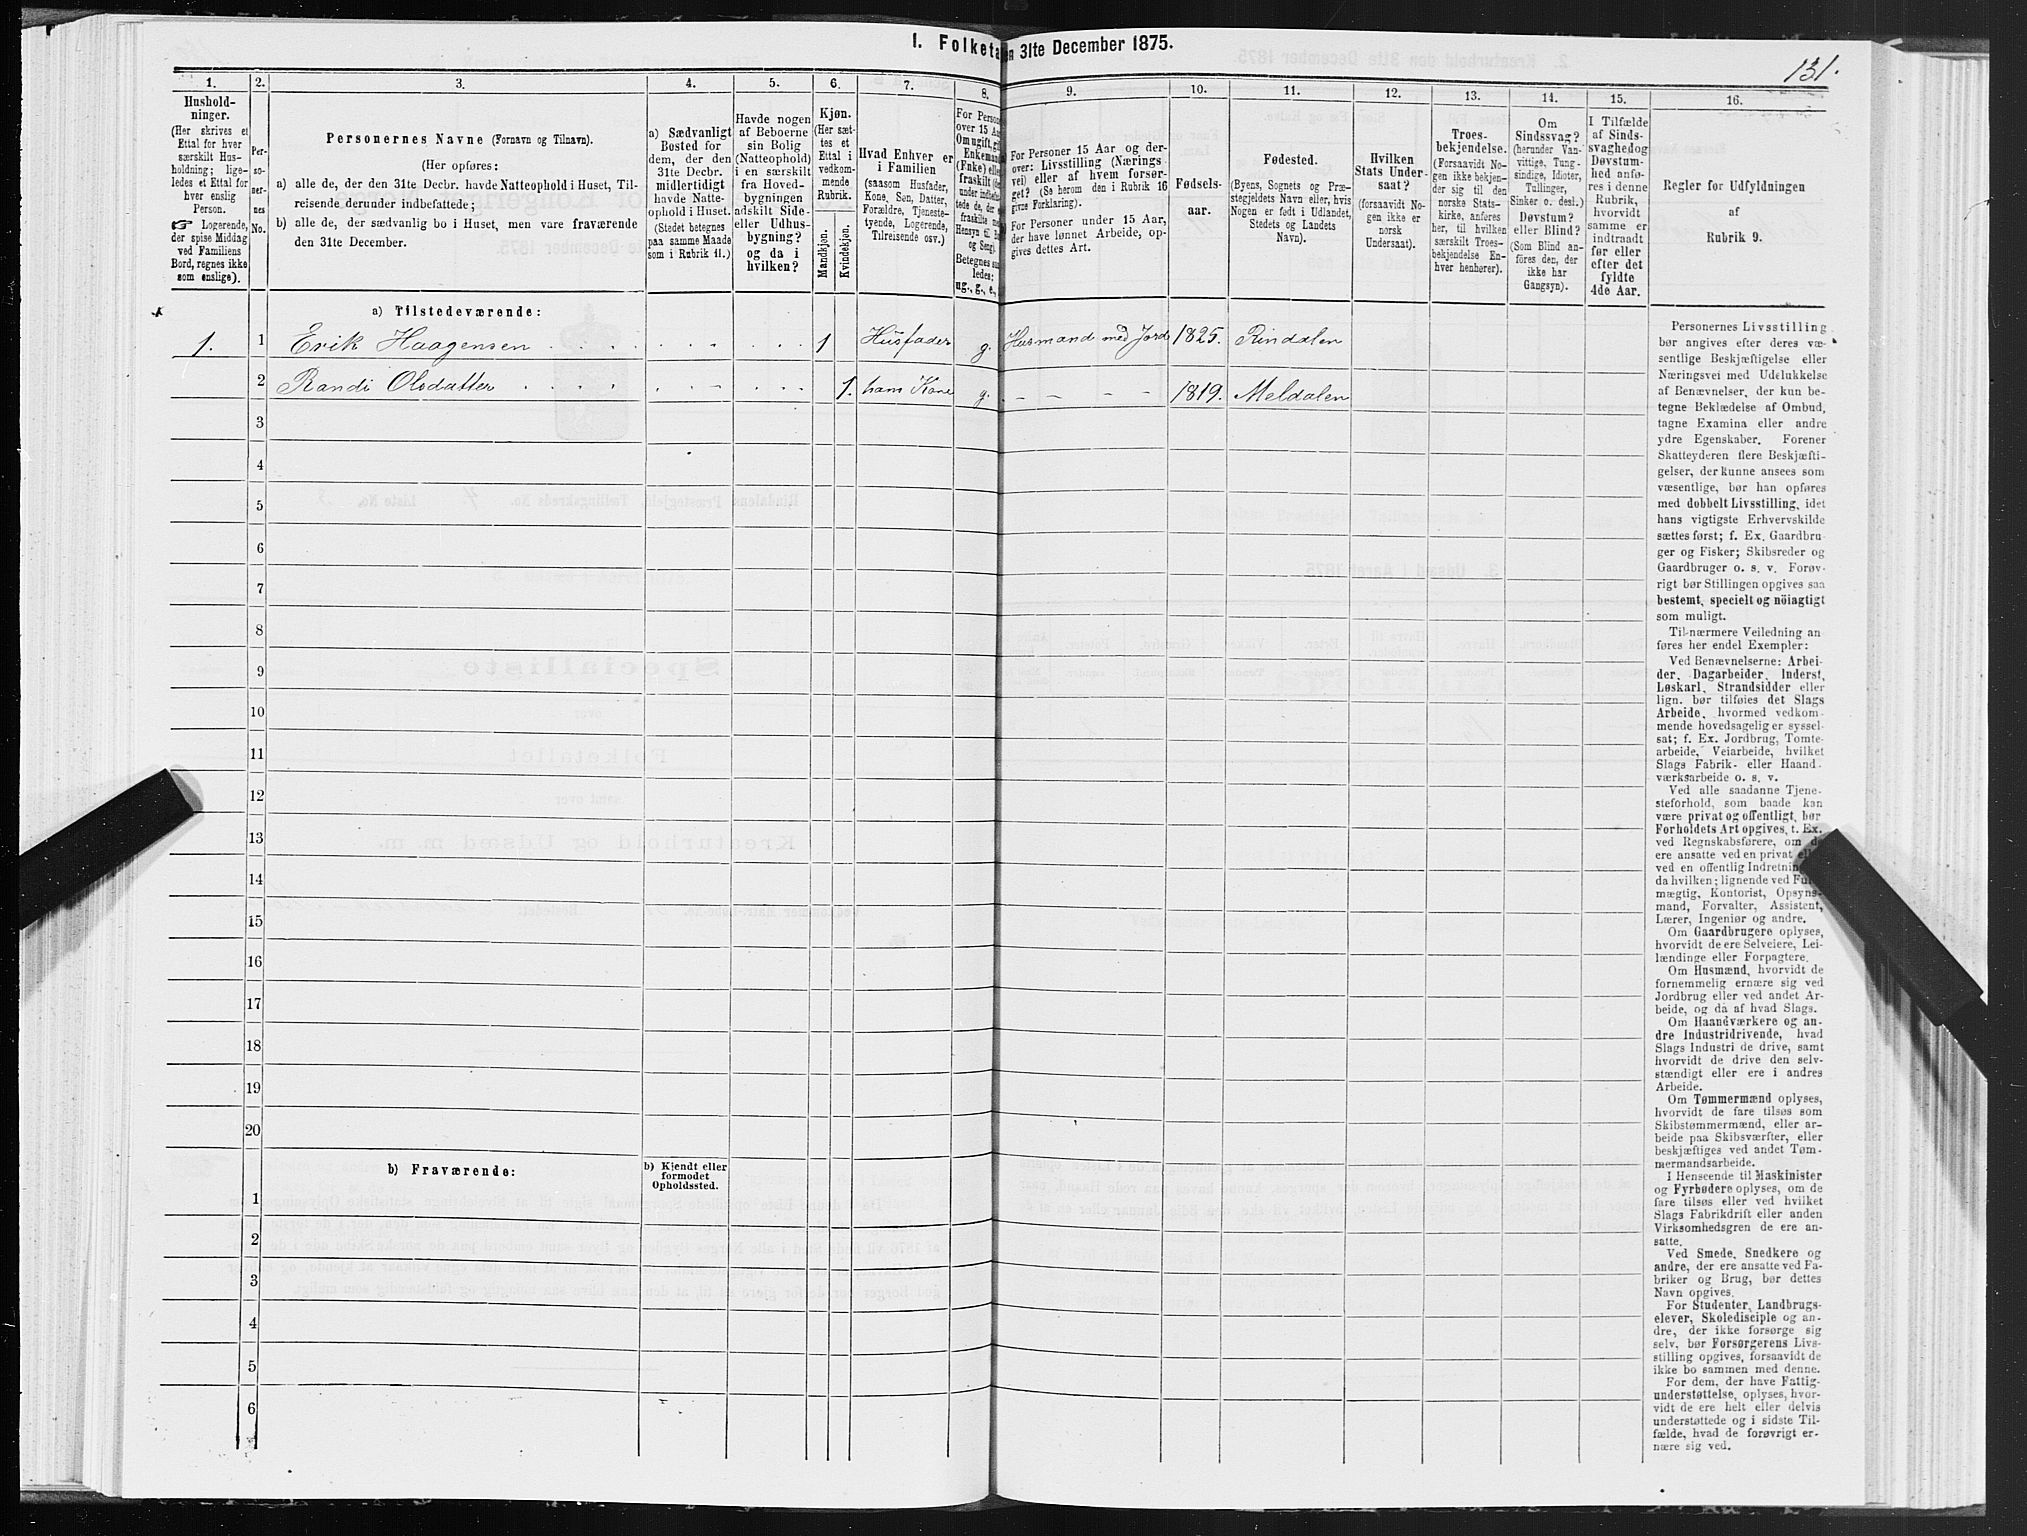 1. Folketa en 31te December 1875.
131.
1.
Hushold-
ninger.
(Her skrives et
Ettal for hver
særskilt Hus-
holdning; lige-
ledes et Ettal for
hver enslig
Person.
☞ Logerende,
der spise Middag
ved Familiens
Bord, regnes ikke
som enslige).
2.
Per-
so-
ner-
nes
No.
3.
Personernes Navne (Fornavn og Tilnavn).
(Her opføres:
a) alle de, der den 31te Decbr. havde Natteophold i Huset, Til-
reisende derunder indbefattede;
b) alle de, der sædvanlig bo i Huset, men vare fraværende
den 31te December.
4.
a) Sædvanligt
Bosted for
dem, der den
31te Decbr.
midlertidigt
havde Natte-
ophold i Huset.
(Stedet betegnes
paa samme Maade
som i Rubrik 11.)
5.
Havde nogen
af Beboerne
sin Bolig
(Natteophold)
i en særskilt
fra Hoved-
bygningen
adskilt Side-
eller Udhus-
bygning?
og da i
hvilken?
6.
Kjøn.
(Her sæt-
tes et
Ettal i
vedkom-
mende
Rubrik.
Mandkjøn.
Kvindekjøn.
7.
Hvad Enhver er
i Familien
(saasom Husfader,
Kone, Søn, Datter,
Forældre, Tjeneste-
tyende, Logerende,
Tilreisende osv.)
8.
For Person
over 15 Aa
Om ugift, gif
Enkeman
(Enke) elle
fraskilt
Betegnes saa
ledes:
ug., g., e.,
9.
For Personer 15 Aar og der-
over: Livsstilling (Nærings
vei) eller af hvem forsør-
get? (Se herom den i Rubrik 16
givne Forklaring).
For Personer under 15 Aar,
der have lønnet Arbeide, op-
gives dettes Art.
10.
Fødsels-
aar.
11.
Fødested.
(Byens, Sognets og Præ-
stegjeldets Navn, eller, hvis
Nogen er født i Udlandet,
Stedets og Landets
Navn).
12.
Hvilken
Stats Under-
saat?
(forsaavidt No-
gen ikke er
norsk
Undersaat).
13.
Troes-
bekjendelse.
(Forsaavidt No-
gen ikke bekjen-
der sig til den
norske Stats-
kirke, anføres
her, til hvilken
særskilt Troes-
bekjendelse En-
hver henhører).
14.
Om
Sindssvag?
(herunder Van-
vittige, Tung-
sindige, Idioter,
Tullinger,
Sinker o. desl.)
Døvstum?
eller Blind?
(Som Blind an-
føres den, der
ikke har
Gangsyn).
15.
I Tilfælde
af Sinds-
svaghed og
Døvstum-
hed anfø-
res i denne
Rubrik,
hvorvidt
samme er
indtraadt
før eller
efter det
fyldte
4de Aar.
16.
Regler for Udfyldningen
af
Rubrik 9.
a) Tilstedeværende:
1. 1 Erik Haagensen 1 Husfader g. Husmand med Jord 1825. Rindalen
2 Randi Olsdatter 1. hans Kone g. 1819. Meldalen
3
4
5
6
7
8
9
10
11
12
13
14
15
16
17
18
19
20
b) Fraværende:
b) Kjendt eller
formodet
Opholdssted.
1
2
3
4
5
6
Personernes Livsstilling
bør angives efter deres væ-
sentlige Beskjæftigelse eller
Næringsvei med Udelukkelse
af Benævnelser, der kun be-
tegne Beklædelse af Ombud,
tagne Examina eller andre
ydre Egenskaber. Forener
Skatteyderen flere Beskjæfti-
gelser, der kunne ansees som
væsentlige, bør han opføres
med dobbelt Livsstilling, idet
hans vigtigste Erhvervskilde
sættes først; f. Ex. Gaardbru-
ger og Fisker; Skibsreder og
Gaardbruger o. s. v. Forøv-
rigt bør Stillingen opgives saa
bestemt, specielt og nöiagtigt
som muligt.
Til nærmere Veiledning an
føres her endel Exempler:
Ved Benævnelserne: Arbei-
der, Dagarbeider, Inderst,
Løskarl, Strandsidder eller
lign. bør tilføies det Slags
Arbeide, hvormed vedkom-
mende hovedsagelig er syssel-
sat; f. Ex. Jordbrug, Tomte-
arbeide, Veiarbeide, hvilket
Slags Fabrik- eller Haand
værksarbeide o. s. v.
Ved alle saadanne Tjene-
steforhold, som baade kan
være privat og offentligt, bør
Forholdets Art opgives, t. Ex.
ved Regnskabsførere, om d
ere ansatte ved en privat ell
ved en offentlig Indretnin
da hvilken; lignende ved Fu
mægtig, Kontorist, Opsyns-
mand, Forvalter, Assistent,
Lærer, Ingeniør og andre.
Om Gaardbrugere oplyses,
hvorvidt de ere Selveiere, Lei-
lændinge eller Forpagtere.
Om Husmænd, hvorvidt de
fornemmelig ernære sig ved
Jordbrug eller ved andet Ar-
beide, og da af hvad Slags.
Om Haandværkere og an-
dre Industridrivende, hvad
Slags Industri de drive, samt
hvorvidt de drive den selv-
stændigt eller ere i andres
Arbeide.
Om Tømmermænd oplyses,
hvorvidt de fare tilsøs som
Skibstømmermænd, eller ar-
beide paa Skibsværfter, eller
beskjæftiges ved andet Tøm-
mermandsarbeide.
I Henseende til Maskinister
og Fyrbødere oplyses, om de
fare tilsøs eller ved hvilket
Slags Fabrikdrift eller anden
Virksomhedsgren de ere an-
satte.
Ved Smede, Snedkere og
andre, der ere ansatte ved Fa-
briker og Brug, bør dettes
Navn opgives.
For Studenter, Landbrugs-
elever, Skoledisciple og an-
dre, der ikke forsørge sig
selv, bør Forsørgerens Livs-
stilling opgives, forsaavidt de
ikke bo sammen med denne.
For dem, der have Fattig-
understøttelse, oplyses, hvor-
vidt de ere helt eller delvis
understøttede og i sidste Til-
fælde, hvad de forøvrigt er-
nære sig ved.